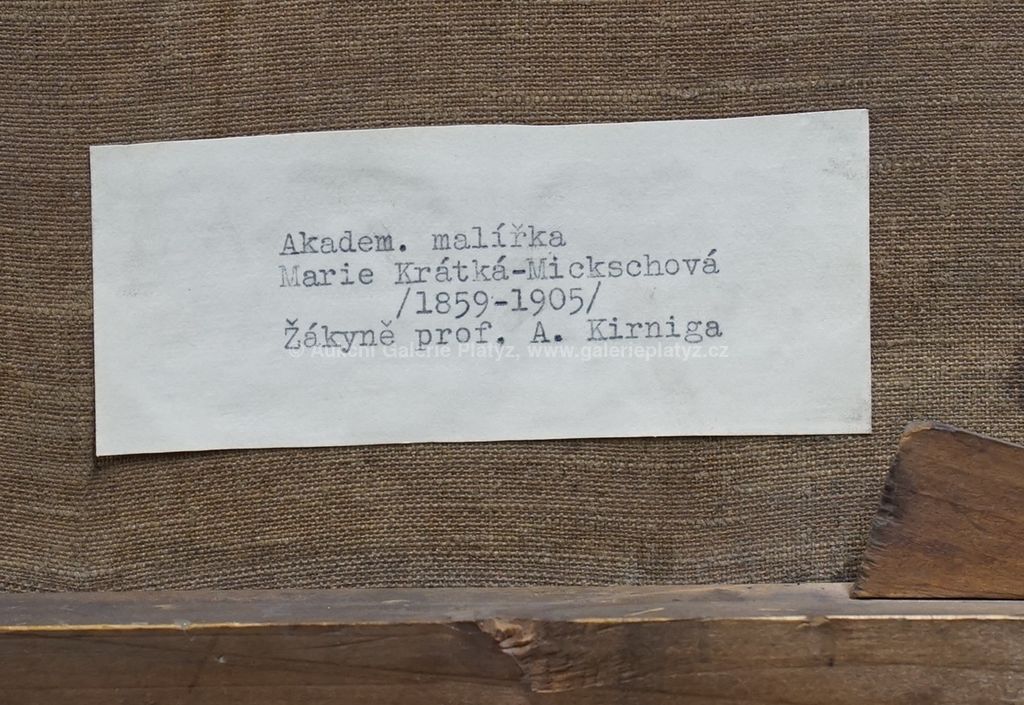 Akadem. malířka
Marie Krátká-Mickschová
/1859-1905/
Žákyně prof. A. Kirniga
© Aukční Galerie Platýz, www.galerieplatyz.cz